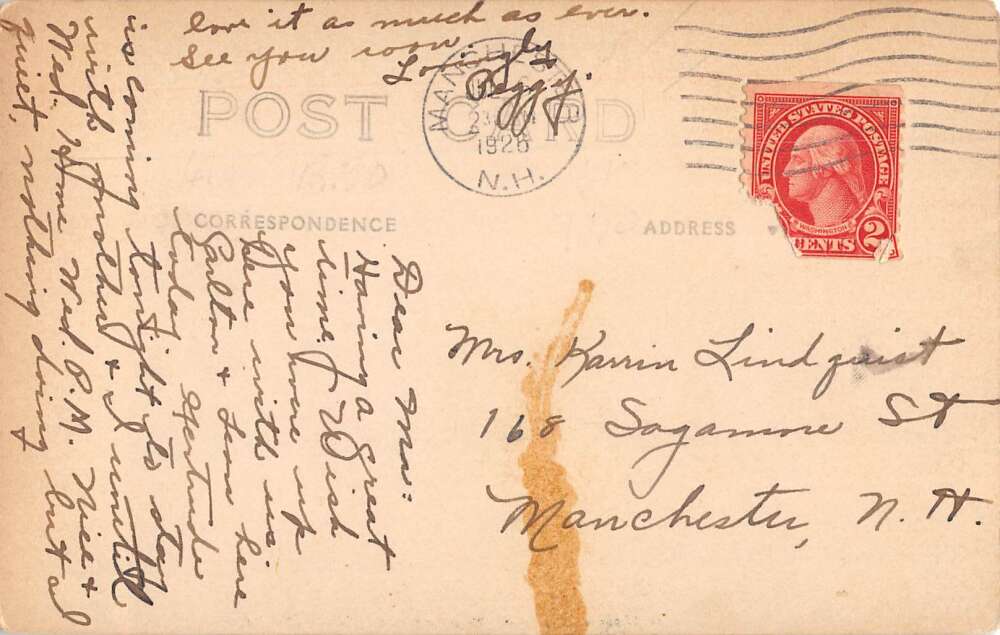 POST CARD
CORRESPONDENCE
ADDRESS
MANCHESTER
1926
N.H.
UNITED STATES POSTAGE
WASHINGTON
2 CENTS 2
Mrs. Karrin Lindquist
168 Sagamore St
Manchester, N. H.
Dear Ma:
Having a great
time. Wish
you were up
here with us.
Carlton + here
today. Gertrude
is coming tonight to stay
with Mother & I until
Wed. Home Wed. P.M. Nice +
quiet, nothing doing but I
love it as much as ever.
See you soon
Lovingly
Peggy.